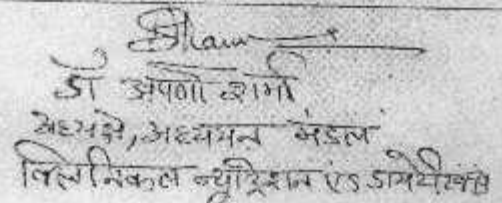 डॉ अपर्णा शर्मा
अध्यक्ष, अध्ययन मंडल
क्लिनिकल न्यूट्रिशन एंड डायटेटिक्स